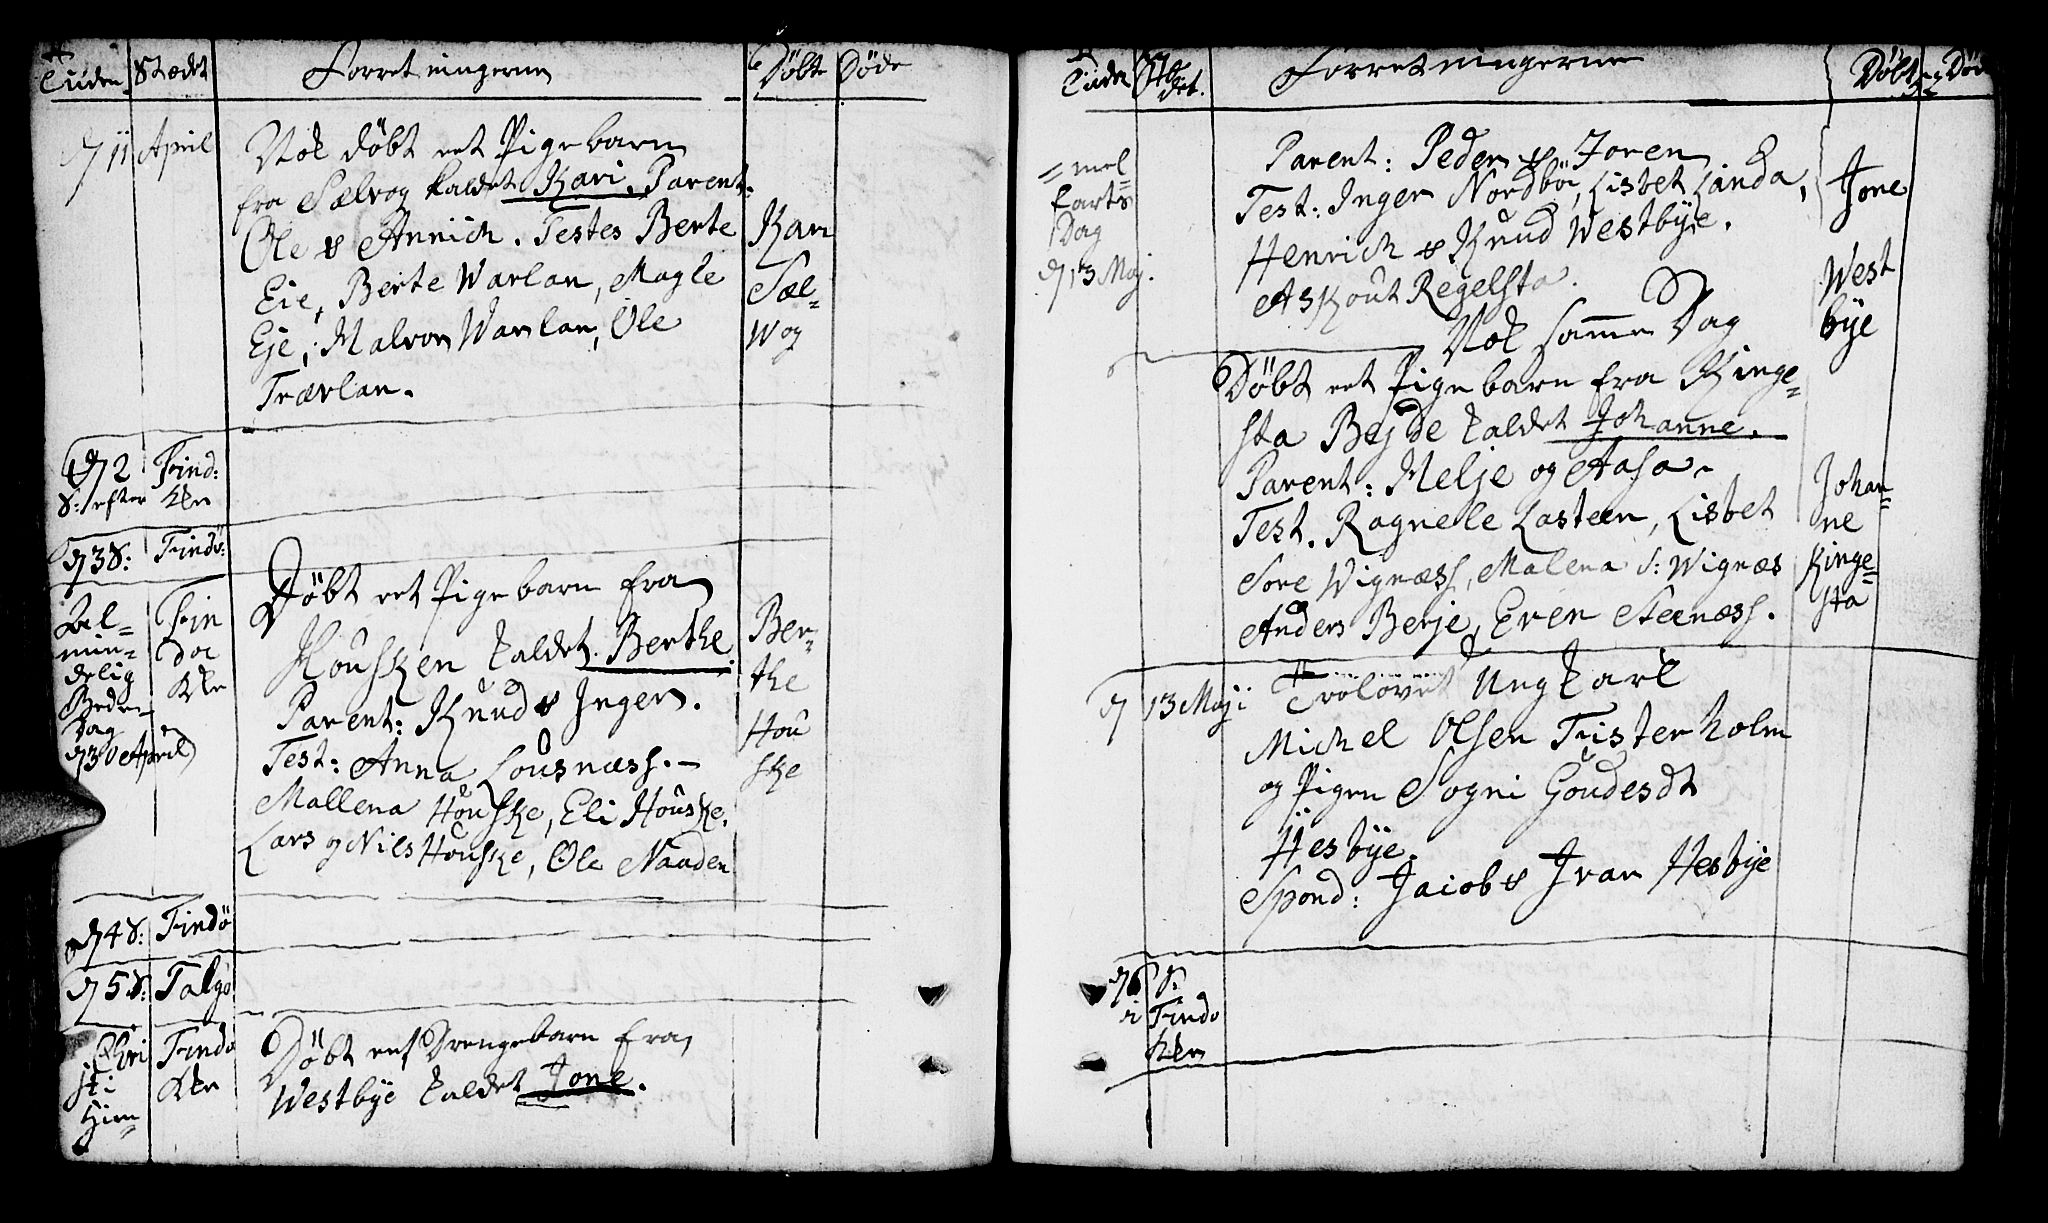 Tiiden Stædet Forretningerne Døbte Døde
D 11 April
Nok døbt eet Pigebarn
fra Sælvog kaldet Kari. Parent:
Ole & Annich. Testes Berte
Eie, Berte Warlan, Magle
Eje, Malron Warlan, Ole
Trærlan.
Kari
Sæl=
wog
D 2 Find:
S: efter Kke
D 3 S: Findö:
Al=
min=
delig
Bede
Dag
D 30 April
Fin
doe
Kke
Döbt eet Pigebarn fra
Housken kaldet Berthe.
Parent: Knud & Inger.
Test: Anna Lousnæss.
Mallena Houske, Eli Houske,
Lars og Nils Houske, Ole Naaden
Ber=
the
Hou
ske
D 4 S: Findö
D 5 S: Talgö
Chri
sti
Him=
Findö
Kke
Döbt eet Drengebarn fra
Westbye kaldet Jone.
Tiiden Stædet. Forretningerne Döbte Död
=mel=
farts
Dag
D 13 Maj.
Parent: Peder & Joren
Test: Inger Nordbö, Lisbet Landa,
Henrich & Knud Westbye.
Askout Regelsta.
Jone
West
bye
Nok samme Dag
Döbt eet Pigebarn fra Ringe=
sta Bejde kaldet Johanne.
Parent: Melje og Aasa
Test. Ragnele Lasteen, Lisbet
Sore Wignæss, Malena S: Wignæs
Anders Berje, Even Steenæss.
Johan=
ne
Ringe=
sta
D 13 Maji Trolovet Ungkarl
Michel Olsen Fisterholm
og Pigen Sogni Goudesdt
Hesbye.
Spond: Jacob & Ivar Hesbye
D 6 S:
i Findö
Kke